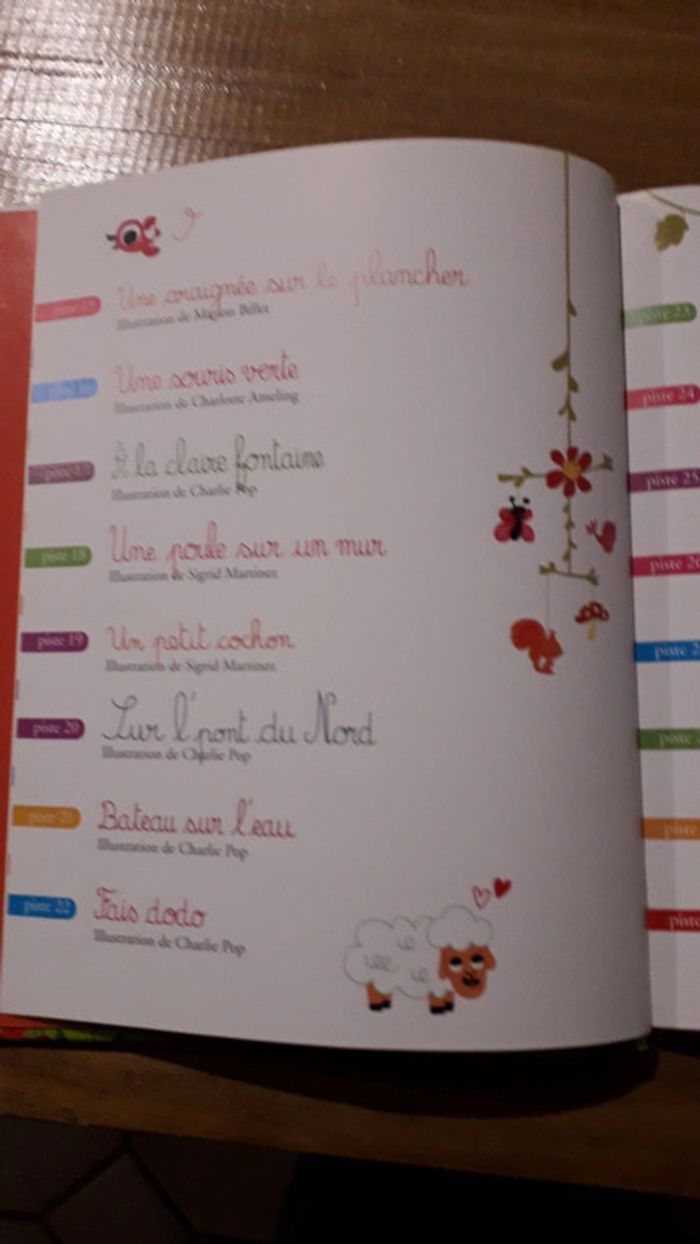 Une araignée sur le plancher
Illustration de Marion Billet
Une souris verte
Illustration de Charlotte Ameling
À la claire fontaine
Illustration de Charlie Pop
piste 18
Une poule sur un mur
Illustration de Sigrid Martinez
piste 19
Un petit cochon
Illustration de Sigrid Martinez
piste 20
Sur l'pont du Nord
Illustration de Charlie Pop
piste 21
Bateau sur l'eau
Illustration de Charlie Pop
piste 22
Fais dodo
Illustration de Charlie Pop
piste 23
piste 24
piste 25
piste
piste
piste
piste